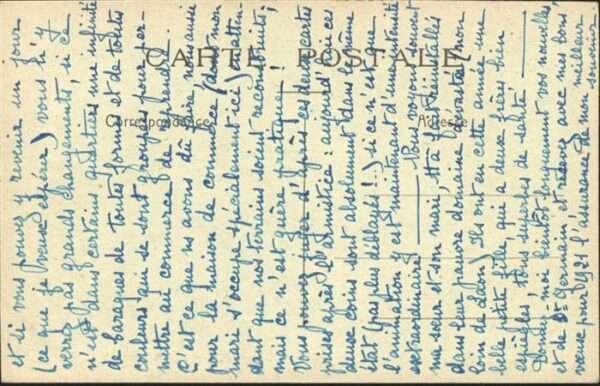 CARTE POSTALE
Correspondance
Adresse
et si vous pouvez y revenir un jour
(ce que je veux espérer) vous n'y
verrez pas grands changements, si ce
n'est dans certains quartiers une infinité
de baraques de toutes formes et de toutes
couleurs qui se sont groupées pour per-
mettre au commerce de reprendre.
C'est ce que ns avons dû faire, nous aussi
pour la maison de commerce (dont mon
mari s'occupe spécialement ici) atten-
dant que nos terrains soient reconstruits;
mais ce n'est guère pratique!
Vous pouvez juger d'après ces deux cartes
prises après l'armistice: aujourd'hui ces
deux coins sont absolument dans le même
état (pas plus déblayés!) si ce n'est que
l'animation y est maintenant d'une intensité
extraordinaire! — Nous voyons souvent
ma sœur et son mari, tt à fait réinstallés
dans leur pauvre domaine dévasté (non
loin de Laon) Ils ont eu cette année une
belle petite fille, qui a deux frères bien
espiègles, tous superbes de santé!
Donnez-moi bientôt longuement vos nouvelles,
et de St Germain et recevez avec mes bons
vœux pour 1921 l'assurance de mon meilleur
souvenir.